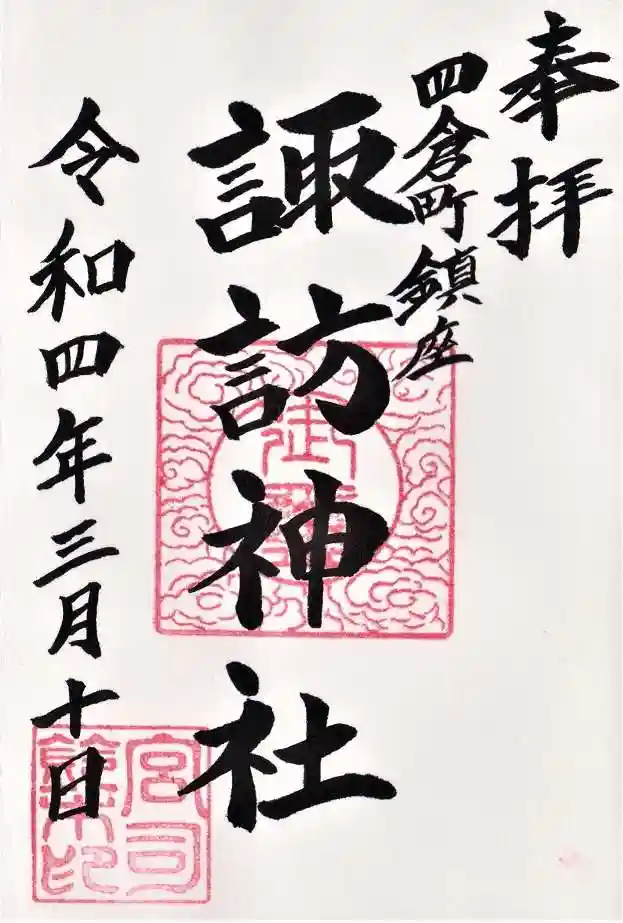 奉拝
四倉町鎮座
諏訪神社
令和四年三月十日
宮司